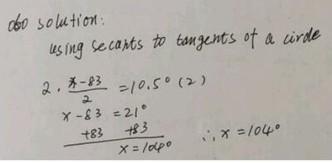 solution:
using secants to tangents of a circle
2. x-83/2 = 10.5° (2)
x - 83 = 21°
+83 +83
x = 104° ∴ x = 104°